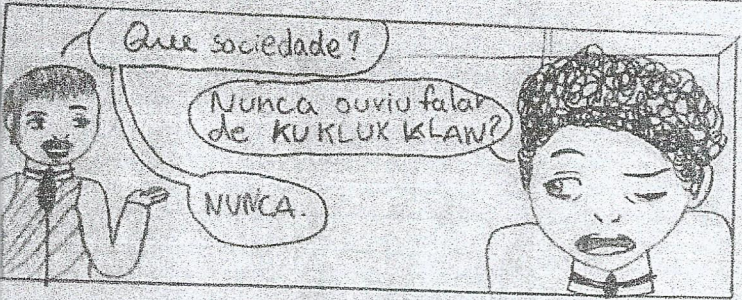 Que sociedade?
Nunca ouviu falar
de KU KLUX KLAN?
NUNCA.